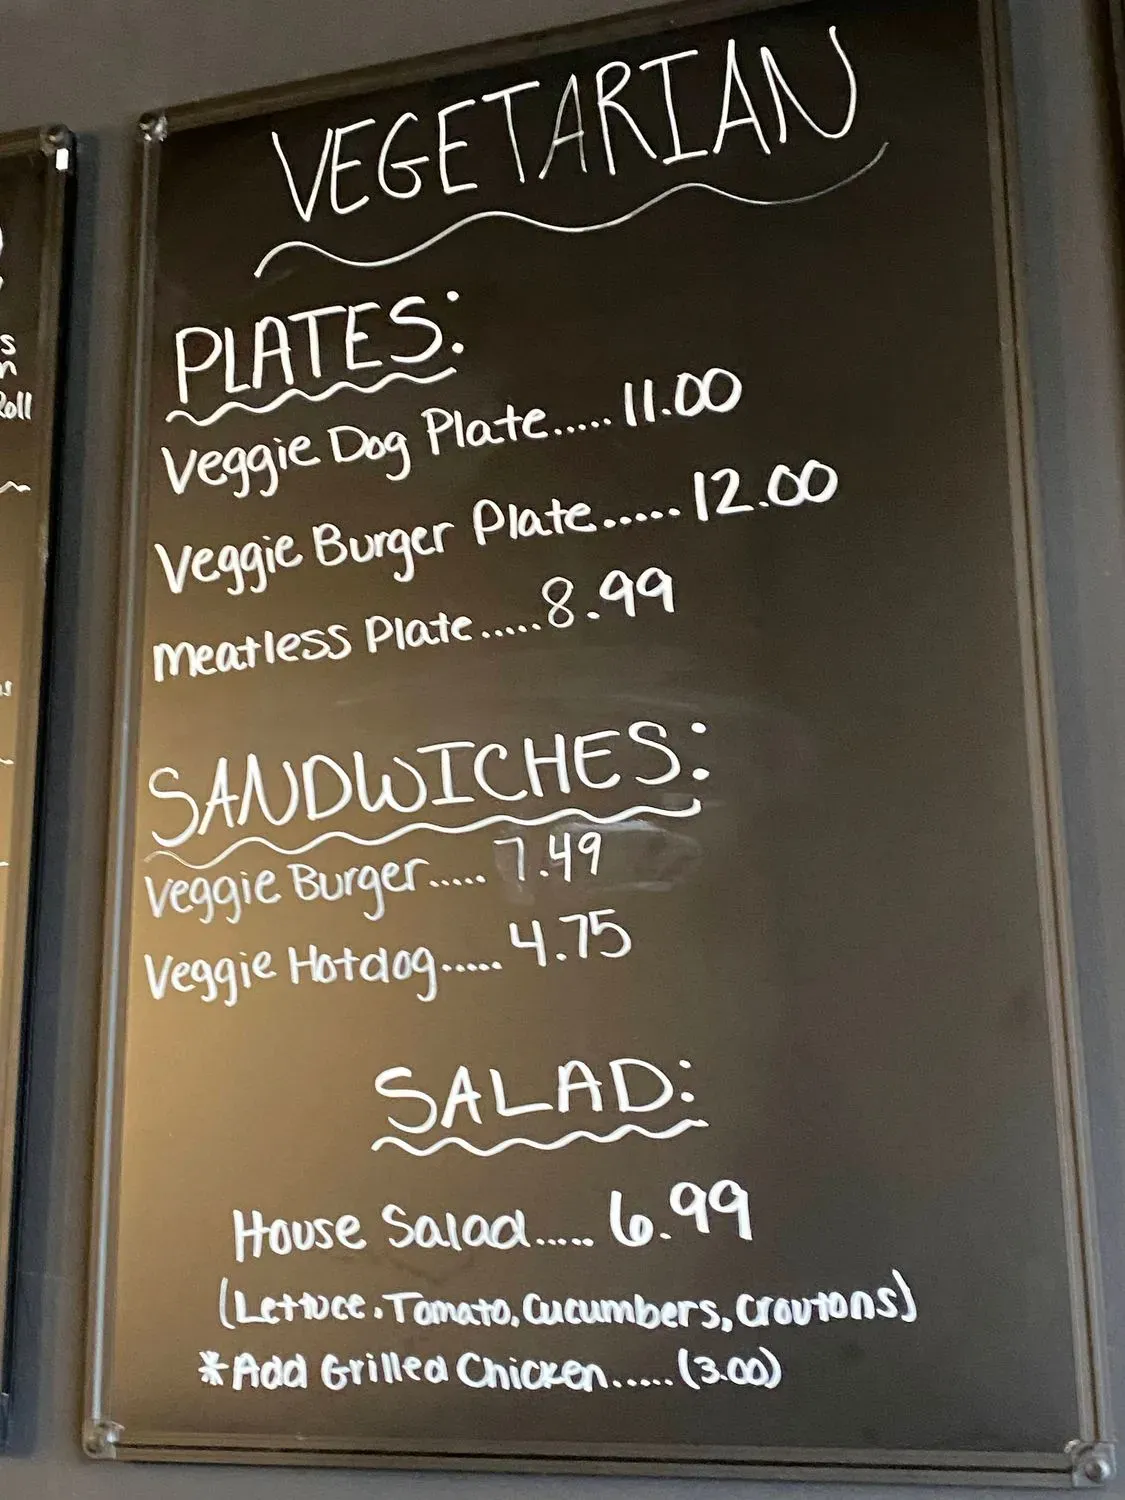 VEGETARIAN
PLATES:
Veggie Dog Plate.....11.00
Veggie Burger Plate.....12.00
Meatless Plate.....8.99
SANDWICHES:
Veggie Burger.....7.49
Veggie Hotdog.....4.75
SALAD:
House Salad.....6.99
(Lettuce, Tomato, Cucumbers, Croutons)
*Add Grilled Chicken.....(3.00)
Roll